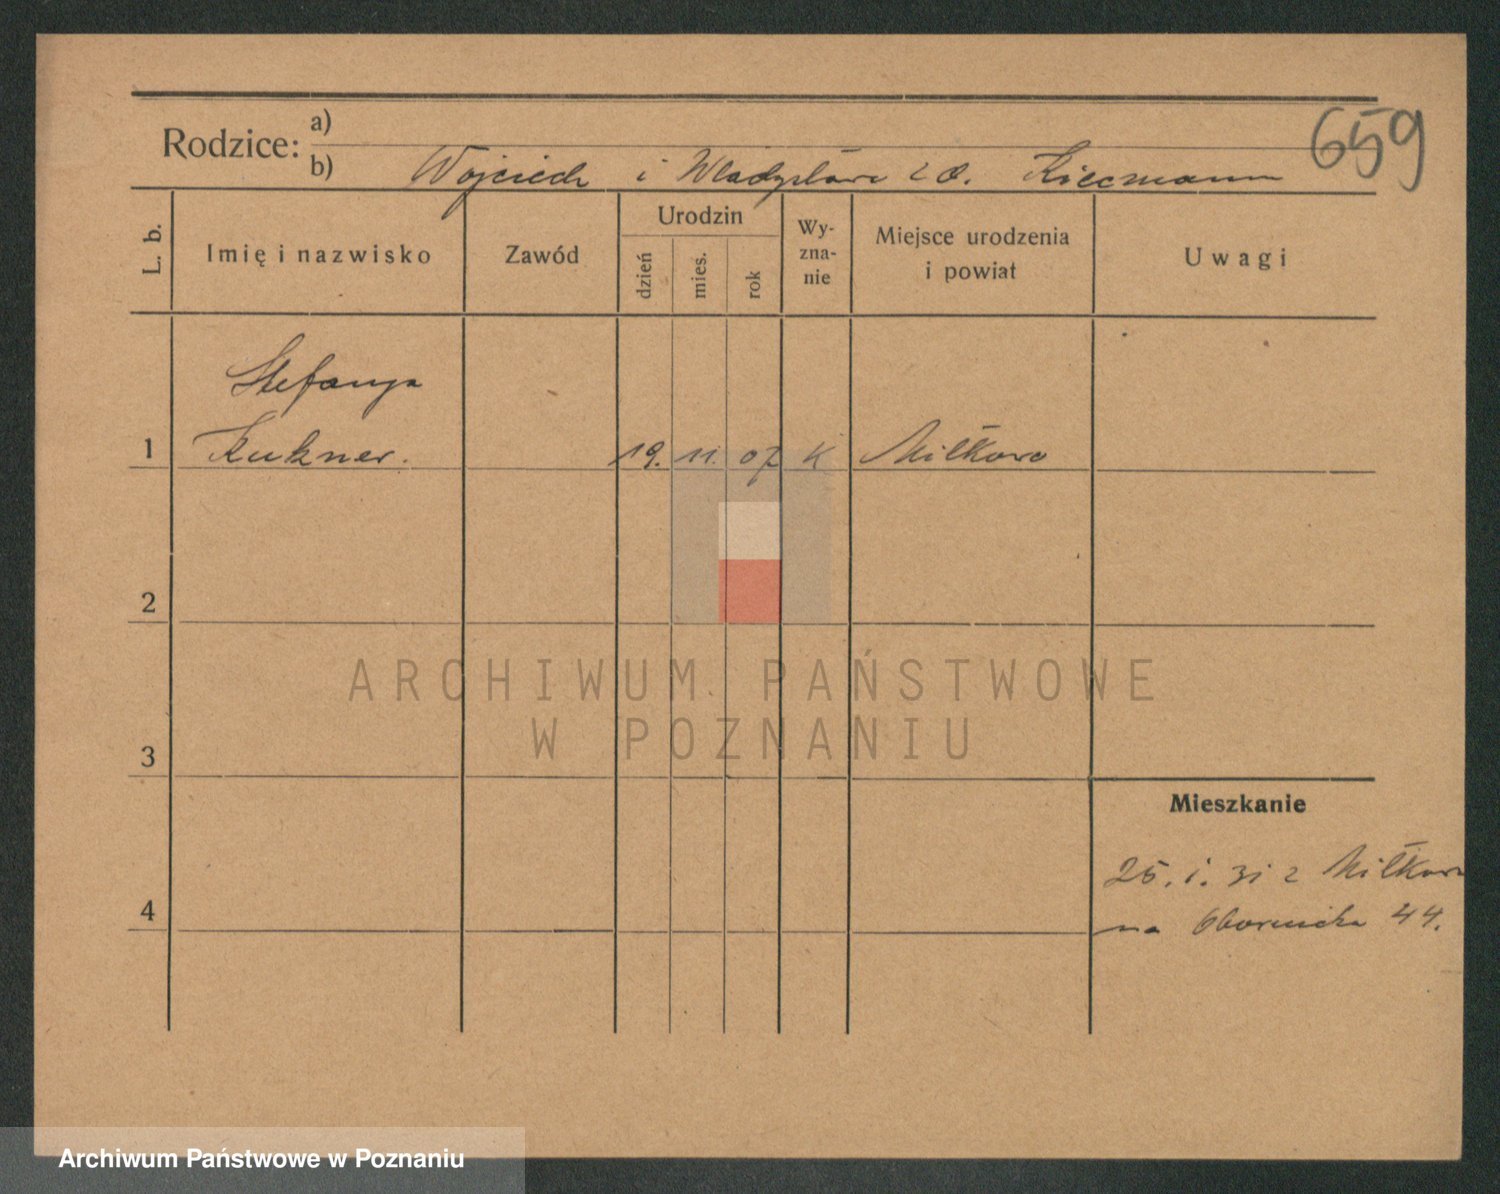 659
Rodzice: a)
b) Wojciech i Władysława z d.
L. b.
Imię i nazwisko
Zawód
Urodzin
dzień
mies.
rok
Wy-
zna-
nie
Miejsce urodzenia
i powiat
Uwagi
Stefanja
1 Kukner. 19. 11. 07 K Miłkowo
2
ARCHIWUM PAŃSTWOWE
W POZNANIU
3
Mieszkanie
25. 1. 31 z Miłkowa
4
na Obornicka 44.
Archiwum Państwowe w Poznaniu